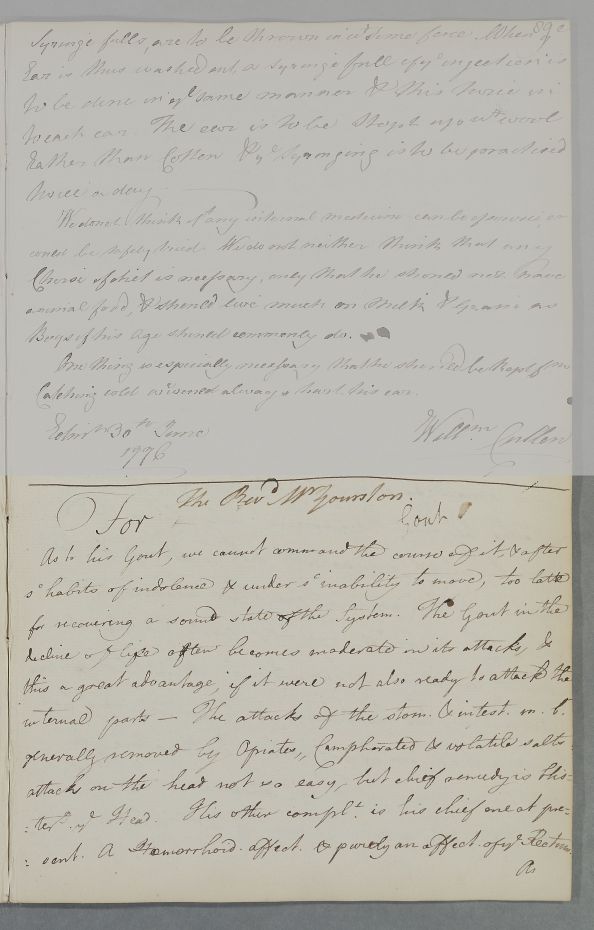 Syringe fulls, are to be thrown in wt some force. When ye
Ear is thus washed out, a syringe full of ye injection is
to be done in ye same manner & this twice in
to each ear. The ear is to be stopt up wt wool
rather than Cotton & ye Syringing is to be practised
twice a day.
We do not think yt any internal medicine can be or
could be safely tried. We do not neither think that any
Choise of diet is necessary, only that he should not have
animal food, & should live much on Milk & Grain as
Boys of his age should commonly do.
One thing is especially necessary that he should be kept from
Catching cold as would always hurt his ear.
Edinr 30th June
1776
Willm Cullen
For The Revd Mr Yourston.
Gout
As to his Gout, we cannot command the course of it, & after
s' habits of indolence & under s' inability to move, too late
for recovering a sound state of the System. The Gout in the
decline of life often becomes moderate in its attacks, &
this a great advantage, if it were not also ready to attack the
internal parts — The attacks of the stom. & intest. m. b.
generally removed by Opiates, Camphorated & volatile salts
attacks on the head not so easy, but chief remedy is Blis-
:ters ye Head. His other complt. is his chief one at pre-
:sent. A Hemorrhoid. affect. & purely an affect. of ye Rectum.
As